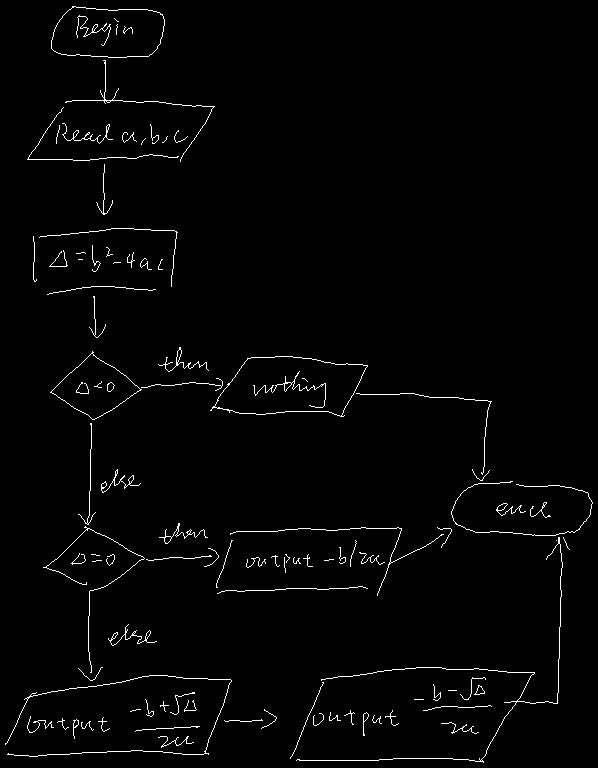 Begin
Read a, b, c
Δ = b² - 4ac
Δ<0
then
nothing
else
end
Δ=0
then
output -b/2a
else
output (-b+√Δ)/2a
output (-b-√Δ)/2a